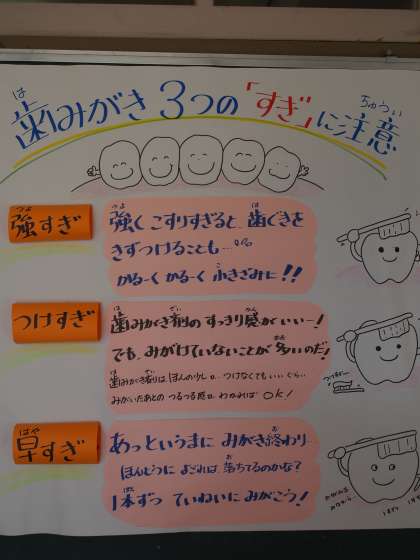 歯みがき 3つの「すぎ」に注意
強すぎ
強く こすりすぎると、歯ぐきを
きずつけることも…
かるーく かるーく ふきざみに!!
つけすぎ
歯みがき剤の すっきり感がいいー!
でも、みがけていないことが 多いのだ!
歯みがき剤は、ほんの少し
みがいたあとの つるつる感が わかれば OK!
早すぎ
あっというまに みがき終わり…
ほんとうに よごれは、落ちてるのかな?
1本ずつ ていねいに みがこう!